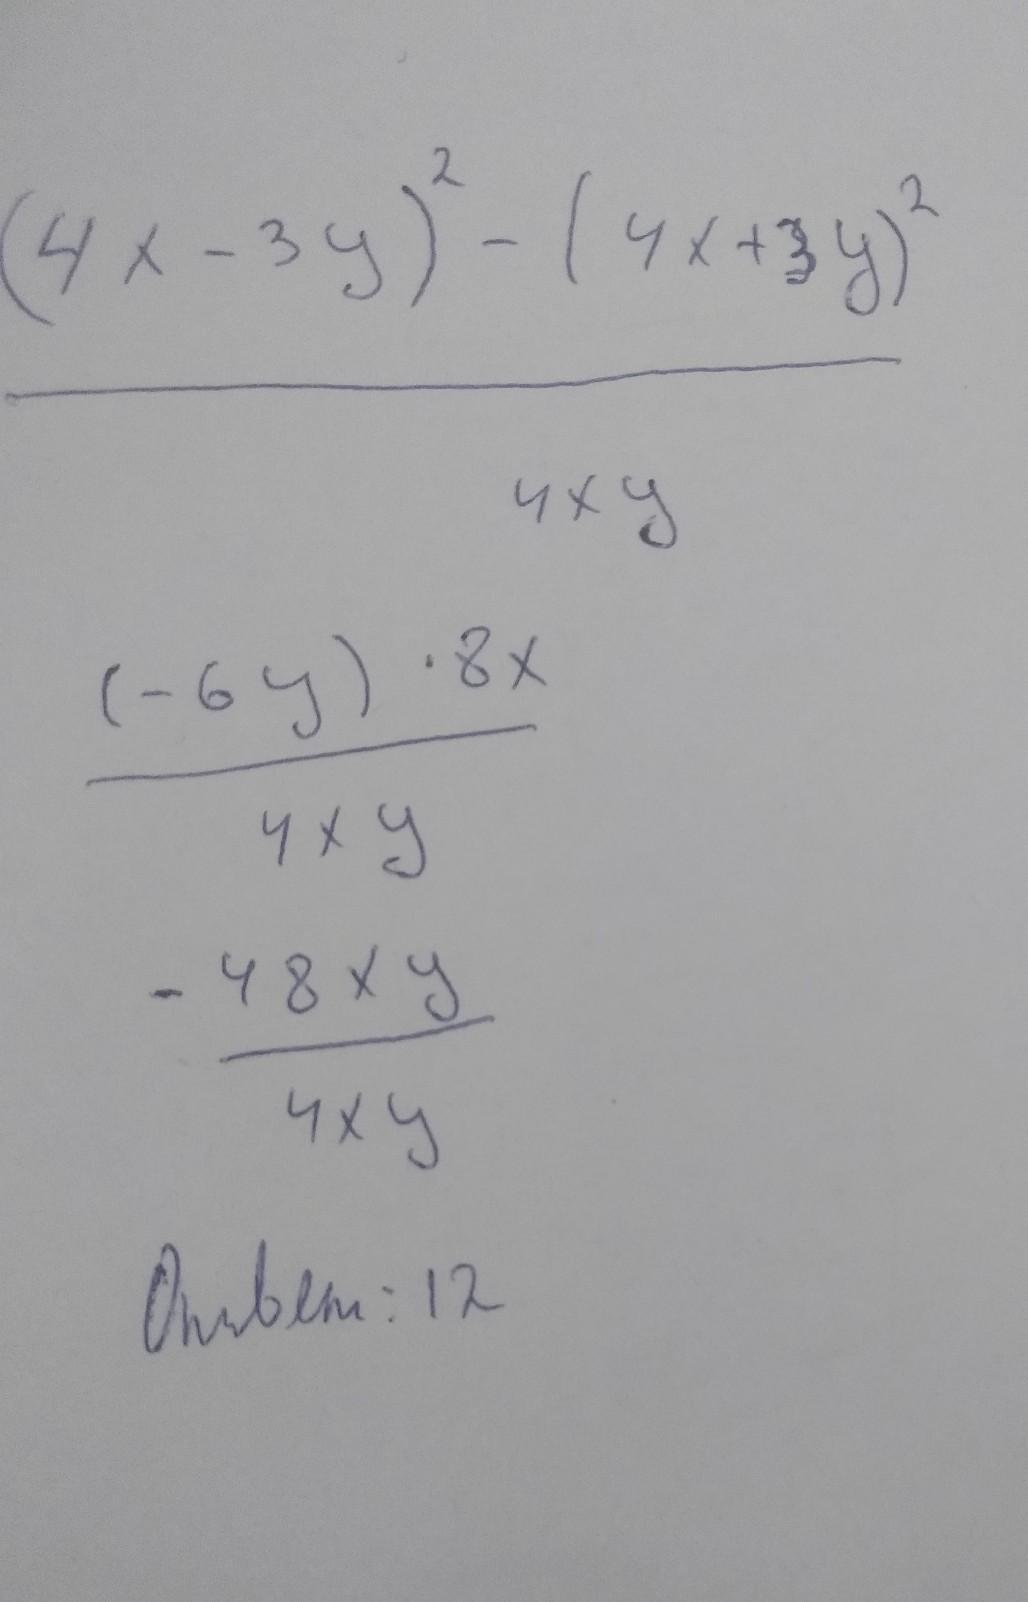 (4x-3y)² - (4x+3y)²
4xy
(-6y) · 8x
4xy
- 48xy
4xy
Ответ: 12